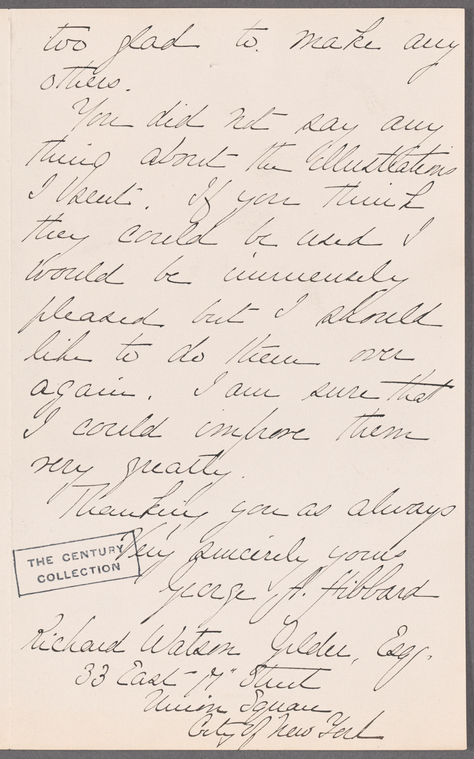 too glad to make any
others.
You did not say any
thing about the illustrations
I sent. If you think
they could be used I
would be immensely
pleased but I should
like to do them over
again. I am sure that
I could improve them
very greatly.
Thanking you as always
Very sincerely yours
George A. Hibbard
THE CENTURY
COLLECTION
Richard Watson Gilder, Esq.
33 East 17" Street
Union Square
City of New York